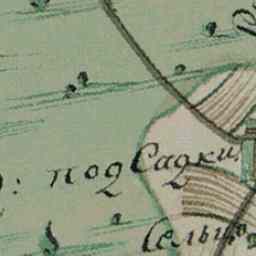 : под Садки,
Сельц